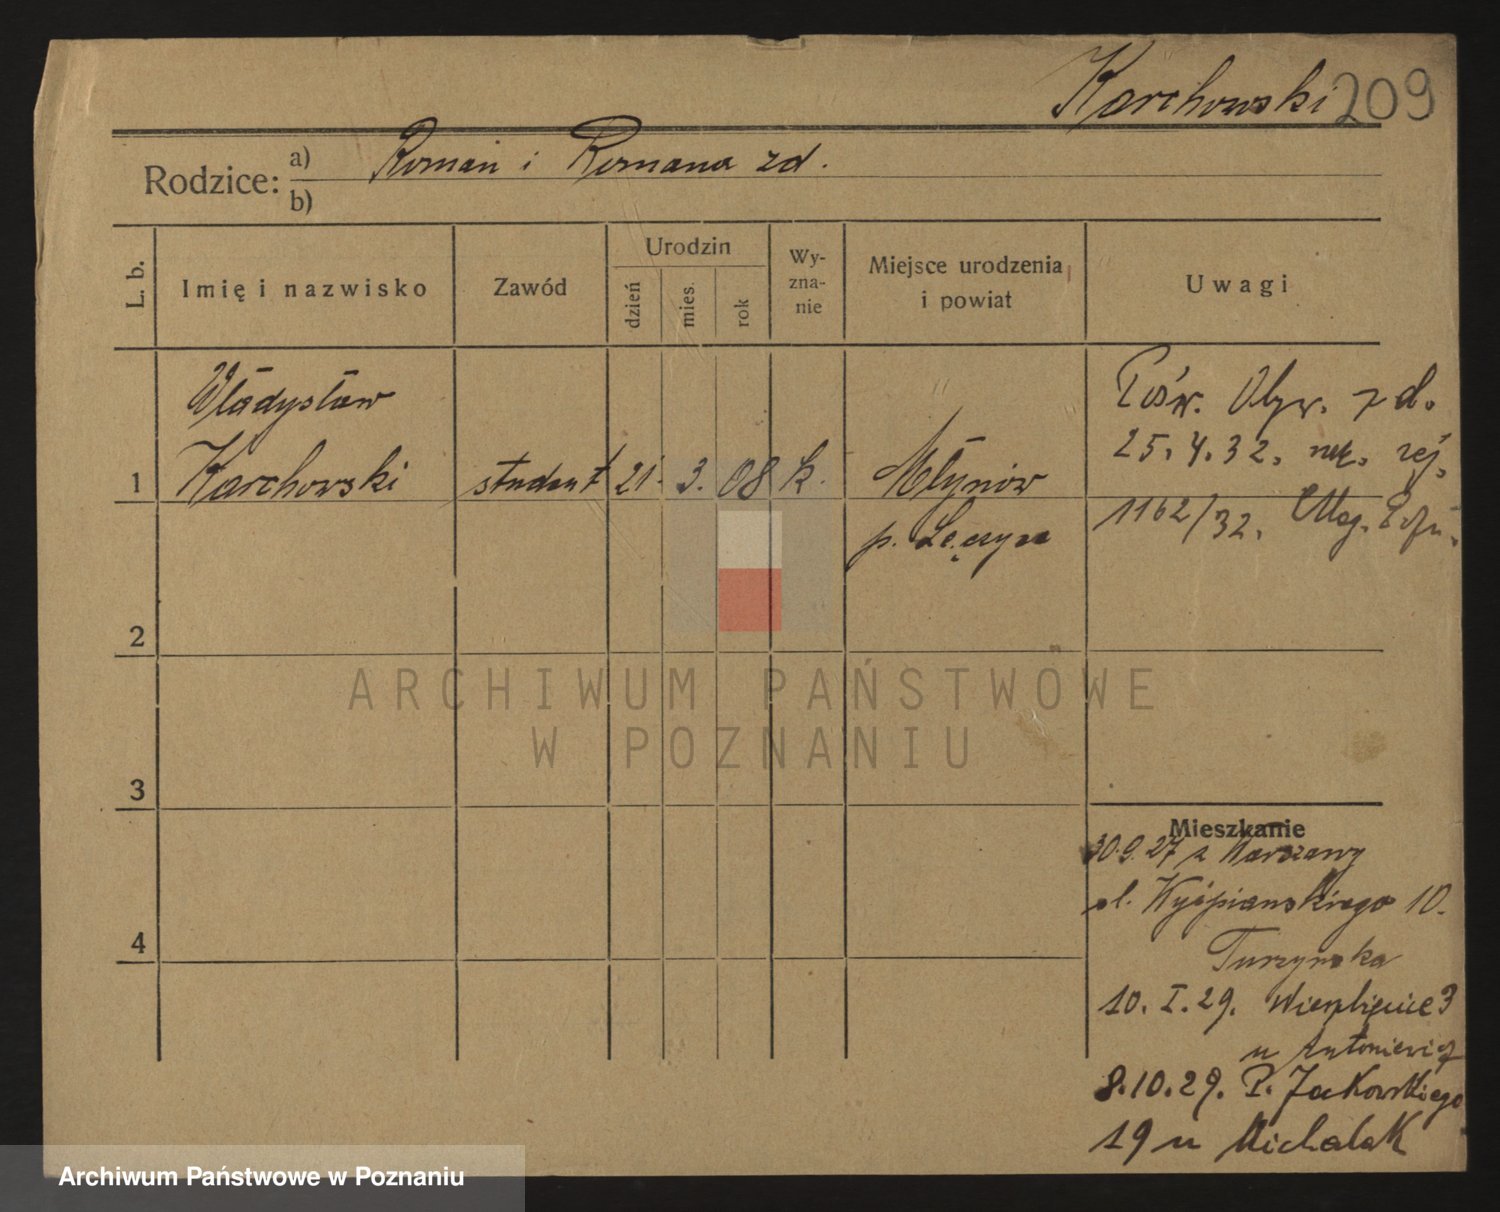 Karchowski 209
Rodzice: a) Roman i Romana zd.
b)
L. b.
Imię i nazwisko
Zawód
Urodzin
dzień
mies.
rok
Wy-
zna-
nie
Miejsce urodzenia
i powiat
Uwagi
Władysław
1 Karchowski student 21. 3. 08 k. Młynów
p. Łęczyca
Pośw. Obyw. z d.
25.4.32. rej.
1162/32. Mag.
2
3
4
Mieszkanie
30.9.27 z Warszawy
ul. Wyspianskiego 10.
Turzynska
10. I. 29. Wierzbięcice 3
u Antoniewicz
8.10.29. P. Jackowskiego
19 u Michalak
ARCHIWUM PAŃSTWOWE
W POZNANIU
Archiwum Państwowe w Poznaniu